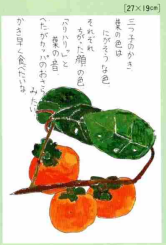 [27×19cm]
三つ子のかき
葉の色は
にがそうな色
それぞれ
ちがった顔の色
「パリパリ」と
葉の音
へたがカッパのおさらみたい
かき早く食べたいな